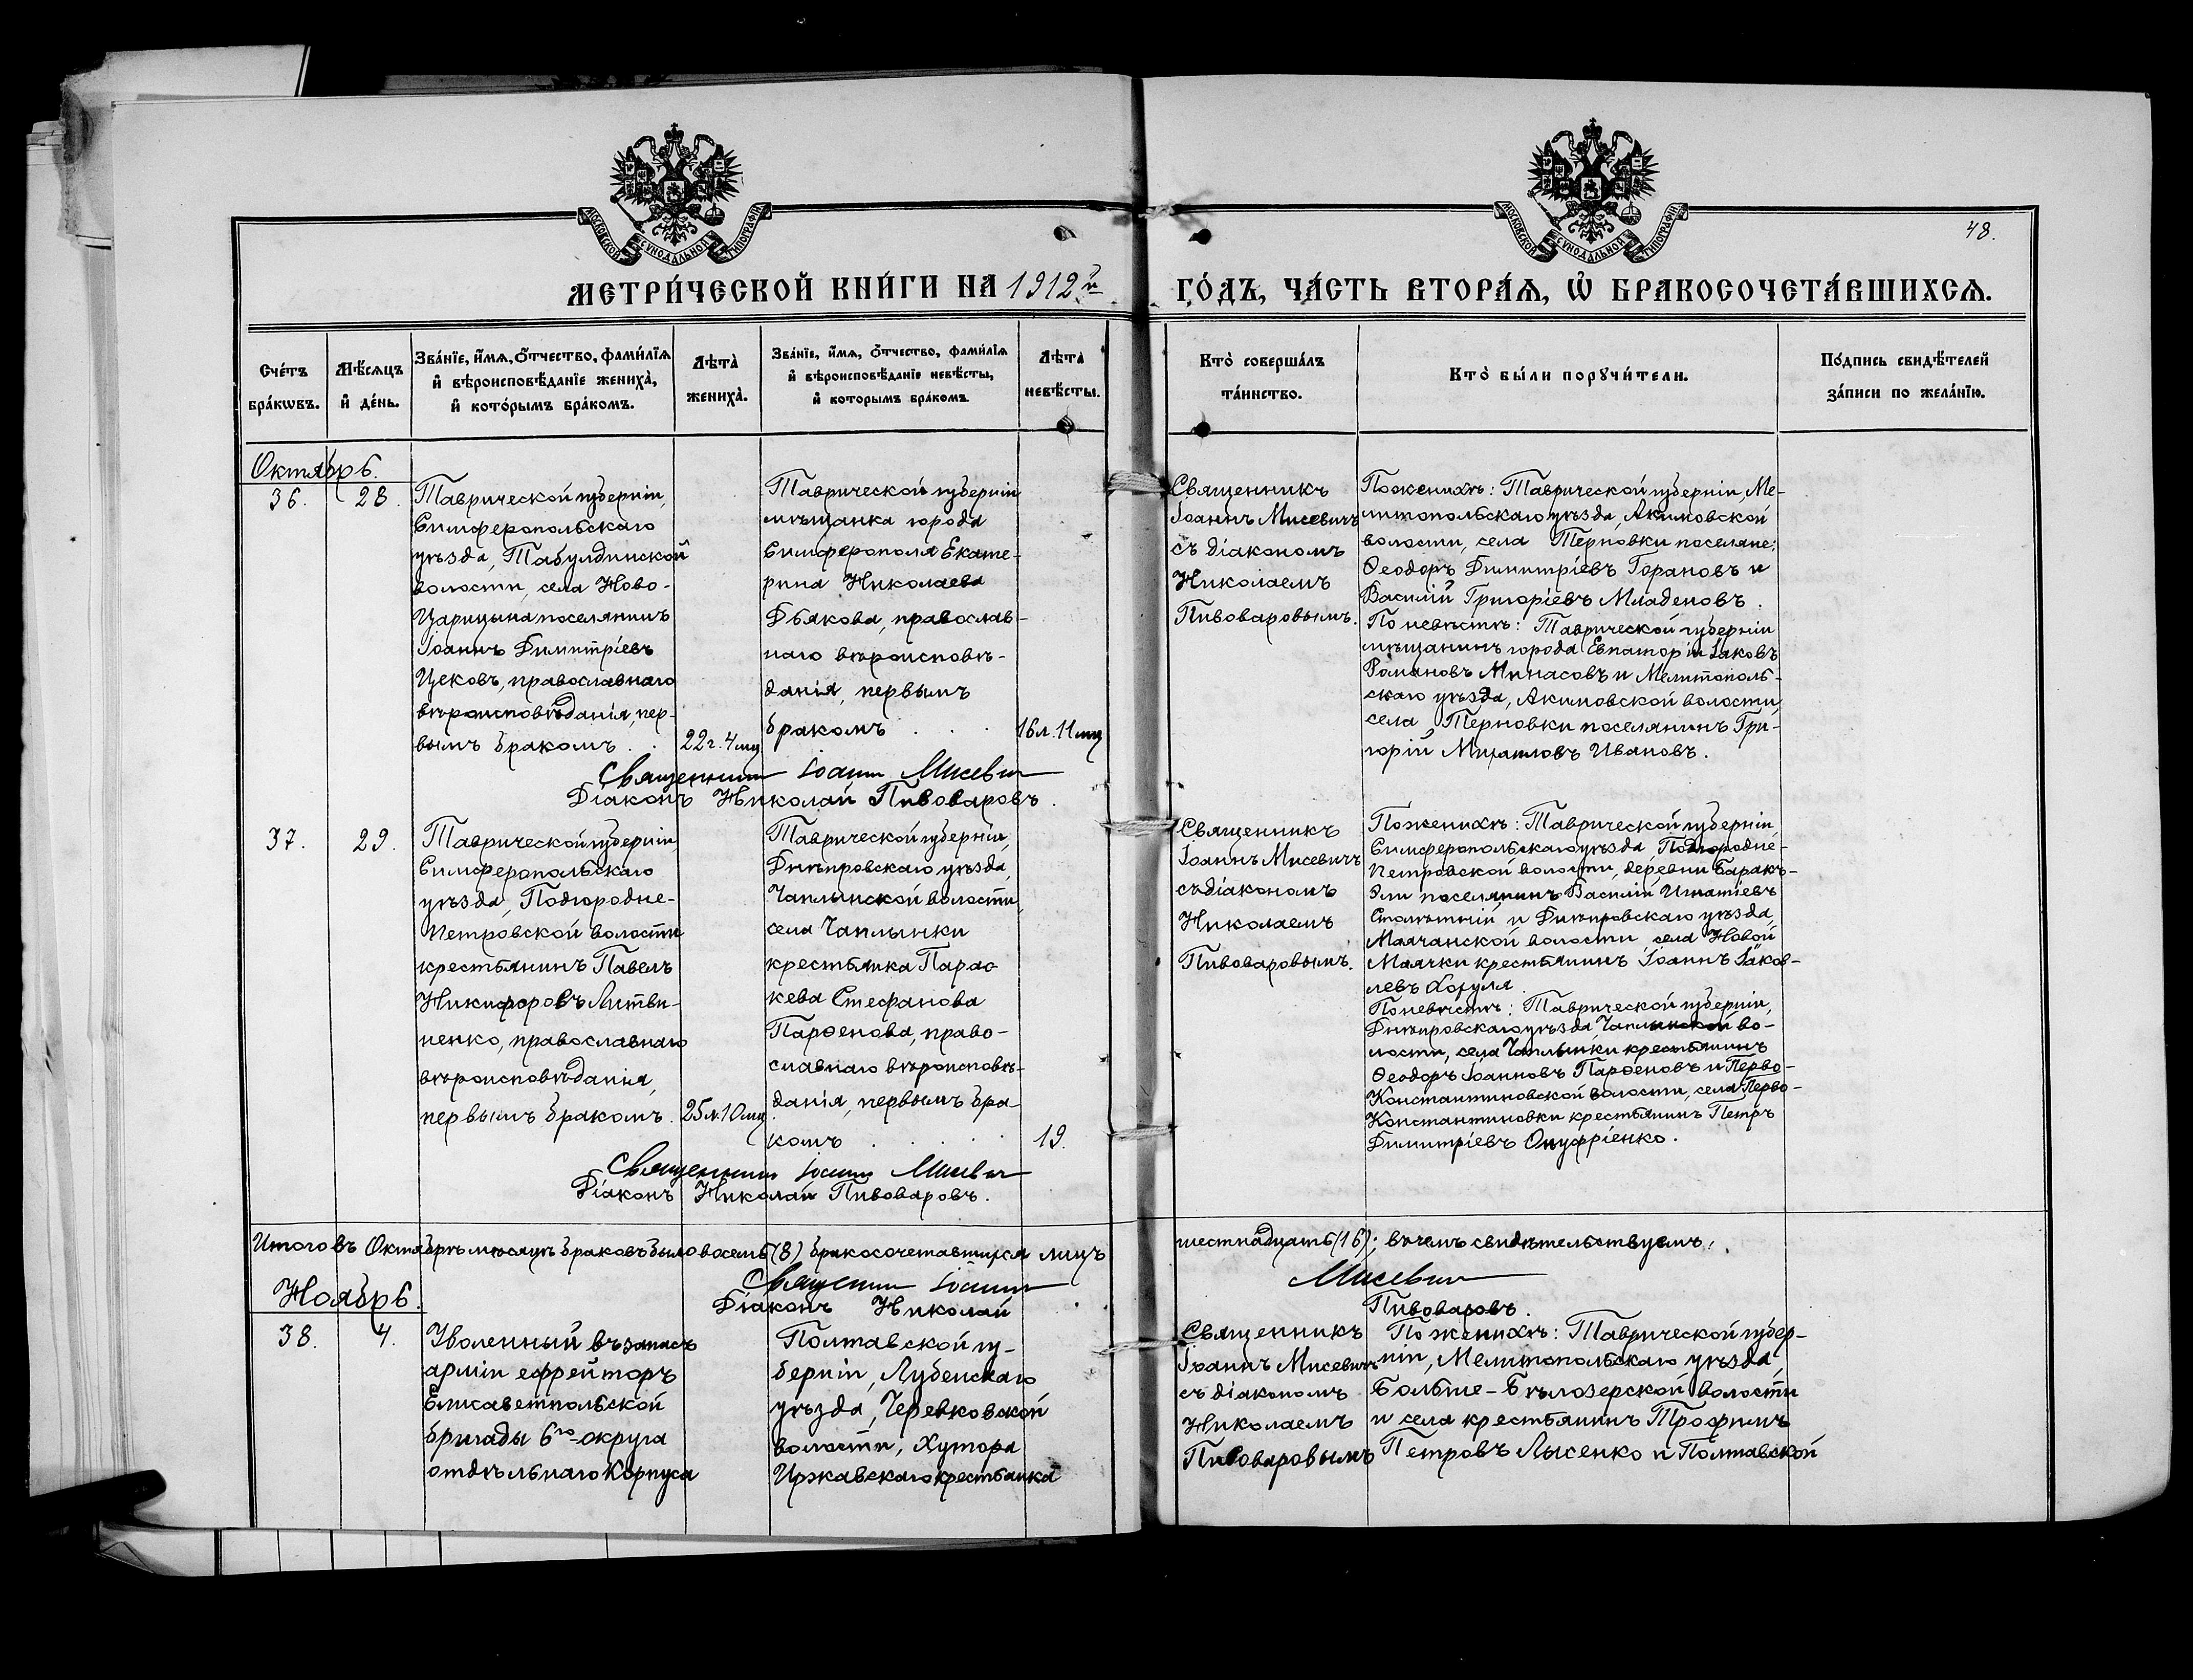 МОСКОВСКОЙ СУНОДАЛЬНОЙ ТИПОГРАФІИ
МОСКОВСКОЙ СУНОДАЛЬНОЙ ТИПОГРАФІИ
48.
МЕТРИ́ЧЕСКОЙ КНИ́ГИ НА 1912й ГО́ДЪ, ЧА́СТЬ ВТОРА́Ѧ, Ѡ҆ БРАКОСОЧЕТА́ВШИХСѦ.
Сче́тъ
бра́кѡвъ.
Мѣ́сѧцъ
и҆ де́нь.
Зва́нїе, и҆́мѧ, ѻ҆́тчество, фами́лїѧ
и҆ вѣроисповѣ́данїе жениха̀,
и҆ кото́рымъ бра́комъ.
Лѣта̀
жениха̀.
Зва́нїе, и҆́мѧ, ѻ҆́тчество, фами́лїѧ
и҆ вѣроисповѣ́данїе невѣ́сты,
и҆ которымъ бра́комъ.
Лѣта̀
невѣ́сты.
Кто̀ соверша́лъ
та́инство.
Кто̀ бы́ли порꙋчи́тели.
По́дпись свидѣ́телей
за́писи по жела́нїю.
Октябрь.
36.
28.
Таврической губерніи,
Симферопольскаго
уѣзда, Табулдинской
волости, села Ново-
Царицына поселянинъ
Іоаннъ Димитріевъ
Цековъ, православнаго
вѣроисповѣданія, пер-
вымъ бракомъ . .
22г. 4мц
Таврической губерніи
мѣщанка города
Симферополя Екате-
рина Николаева
Дьякова, православ-
наго вѣроисповѣ-
данія, первымъ
бракомъ . . .
16л. 11мц
Священникъ
Іоаннъ Мисевичъ
съ діакономъ
Николаемъ
Пивоваровымъ.
По женихѣ: Таврической губерніи, Ме-
литопольскаго уѣзда, Акимовской
волости, села Терновки поселяне:
Ѳеодоръ Димитріевъ Горановъ и
Василій Григоріевъ Младеновъ.
По невѣстѣ: Таврической губерніи
мѣщанинъ города Евпаторіи Іаковъ
Романовъ Минасовъ и Мелитополь-
скаго уѣзда, Акимовской волости,
села Терновки поселянинъ Гри-
горій Михаиловъ Ивановъ.
Священникъ Іоаннъ Мисевич
Діаконъ Николай Пивоваровъ.
37.
29.
Таврической губерніи,
Симферопольскаго
уѣзда, Подгородне-
Петровской волости
крестьянинъ Павелъ
Никифоровъ Литви-
ненко, православнаго
вѣроисповѣданія,
первымъ бракомъ.
25л. 10мц
Таврической губерніи,
Днѣпровскаго уѣзда,
Чаплынской волости,
села Чаплынки
крестьянка Парас
кева Стефанова
Парѳенова, право-
славнаго вѣроисповѣ-
данія, первымъ бра-
комъ . . . .
19.
Священникъ
Іоаннъ Мисевичъ
съ діакономъ
Николаемъ
Пивоваровымъ.
По женихѣ: Таврической губерніи
Симферопольскаго уѣзда, Подгородне-
Петровской волости, деревни Баракъ-
Эли поселянинъ Василій Игнатіевъ
Столѣтній и Днѣпровскаго уѣзда,
Маячанской волости, села Новой
Маячки крестьянинъ Іоаннъ Іаков-
левъ
По невѣстѣ: Таврической губерніи,
Днѣпровскаго уѣзда Чаплынской во-
лости, села Чаплынки крестьянинъ
Ѳеодоръ Іоанновъ Парѳеновъ и Перво-
Константиновской волости, села Перво-
Константиновки крестьянинъ Петръ
Димитріевъ Онуфріенко.
Священникъ Іоаннъ Мисевич
Діаконъ Николай Пивоваровъ.
Итого въ Октябрѣ мѣсяцѣ браковъ было восемь (8) бракосочетавшихся лицъ шестнадцать (16); въ чемъ свидѣтельствуемъ:
Священникъ Іоаннъ Мисевич
Діаконъ Николай Пивоваровъ.
Ноябрь.
38.
4.
Уволенный въ запасъ
арміи ефрейторъ
Елисаветпольской
бригады 6го округа
отдѣльнаго Корпуса
Полтавской гу-
берніи, Лубенскаго
уѣзда, Черевковской
волости, хутора
Иржавскаго крестьянка
Священникъ
Іоаннъ Мисевичъ
съ діакономъ
Николаемъ
Пивоваровымъ
По женихѣ: Таврической губер-
ніи, Мелитопольскаго уѣзда,
Больше-Бѣлозерской волости
и села крестьянинъ Трофимъ
Петровъ Лысенко и Полтавской